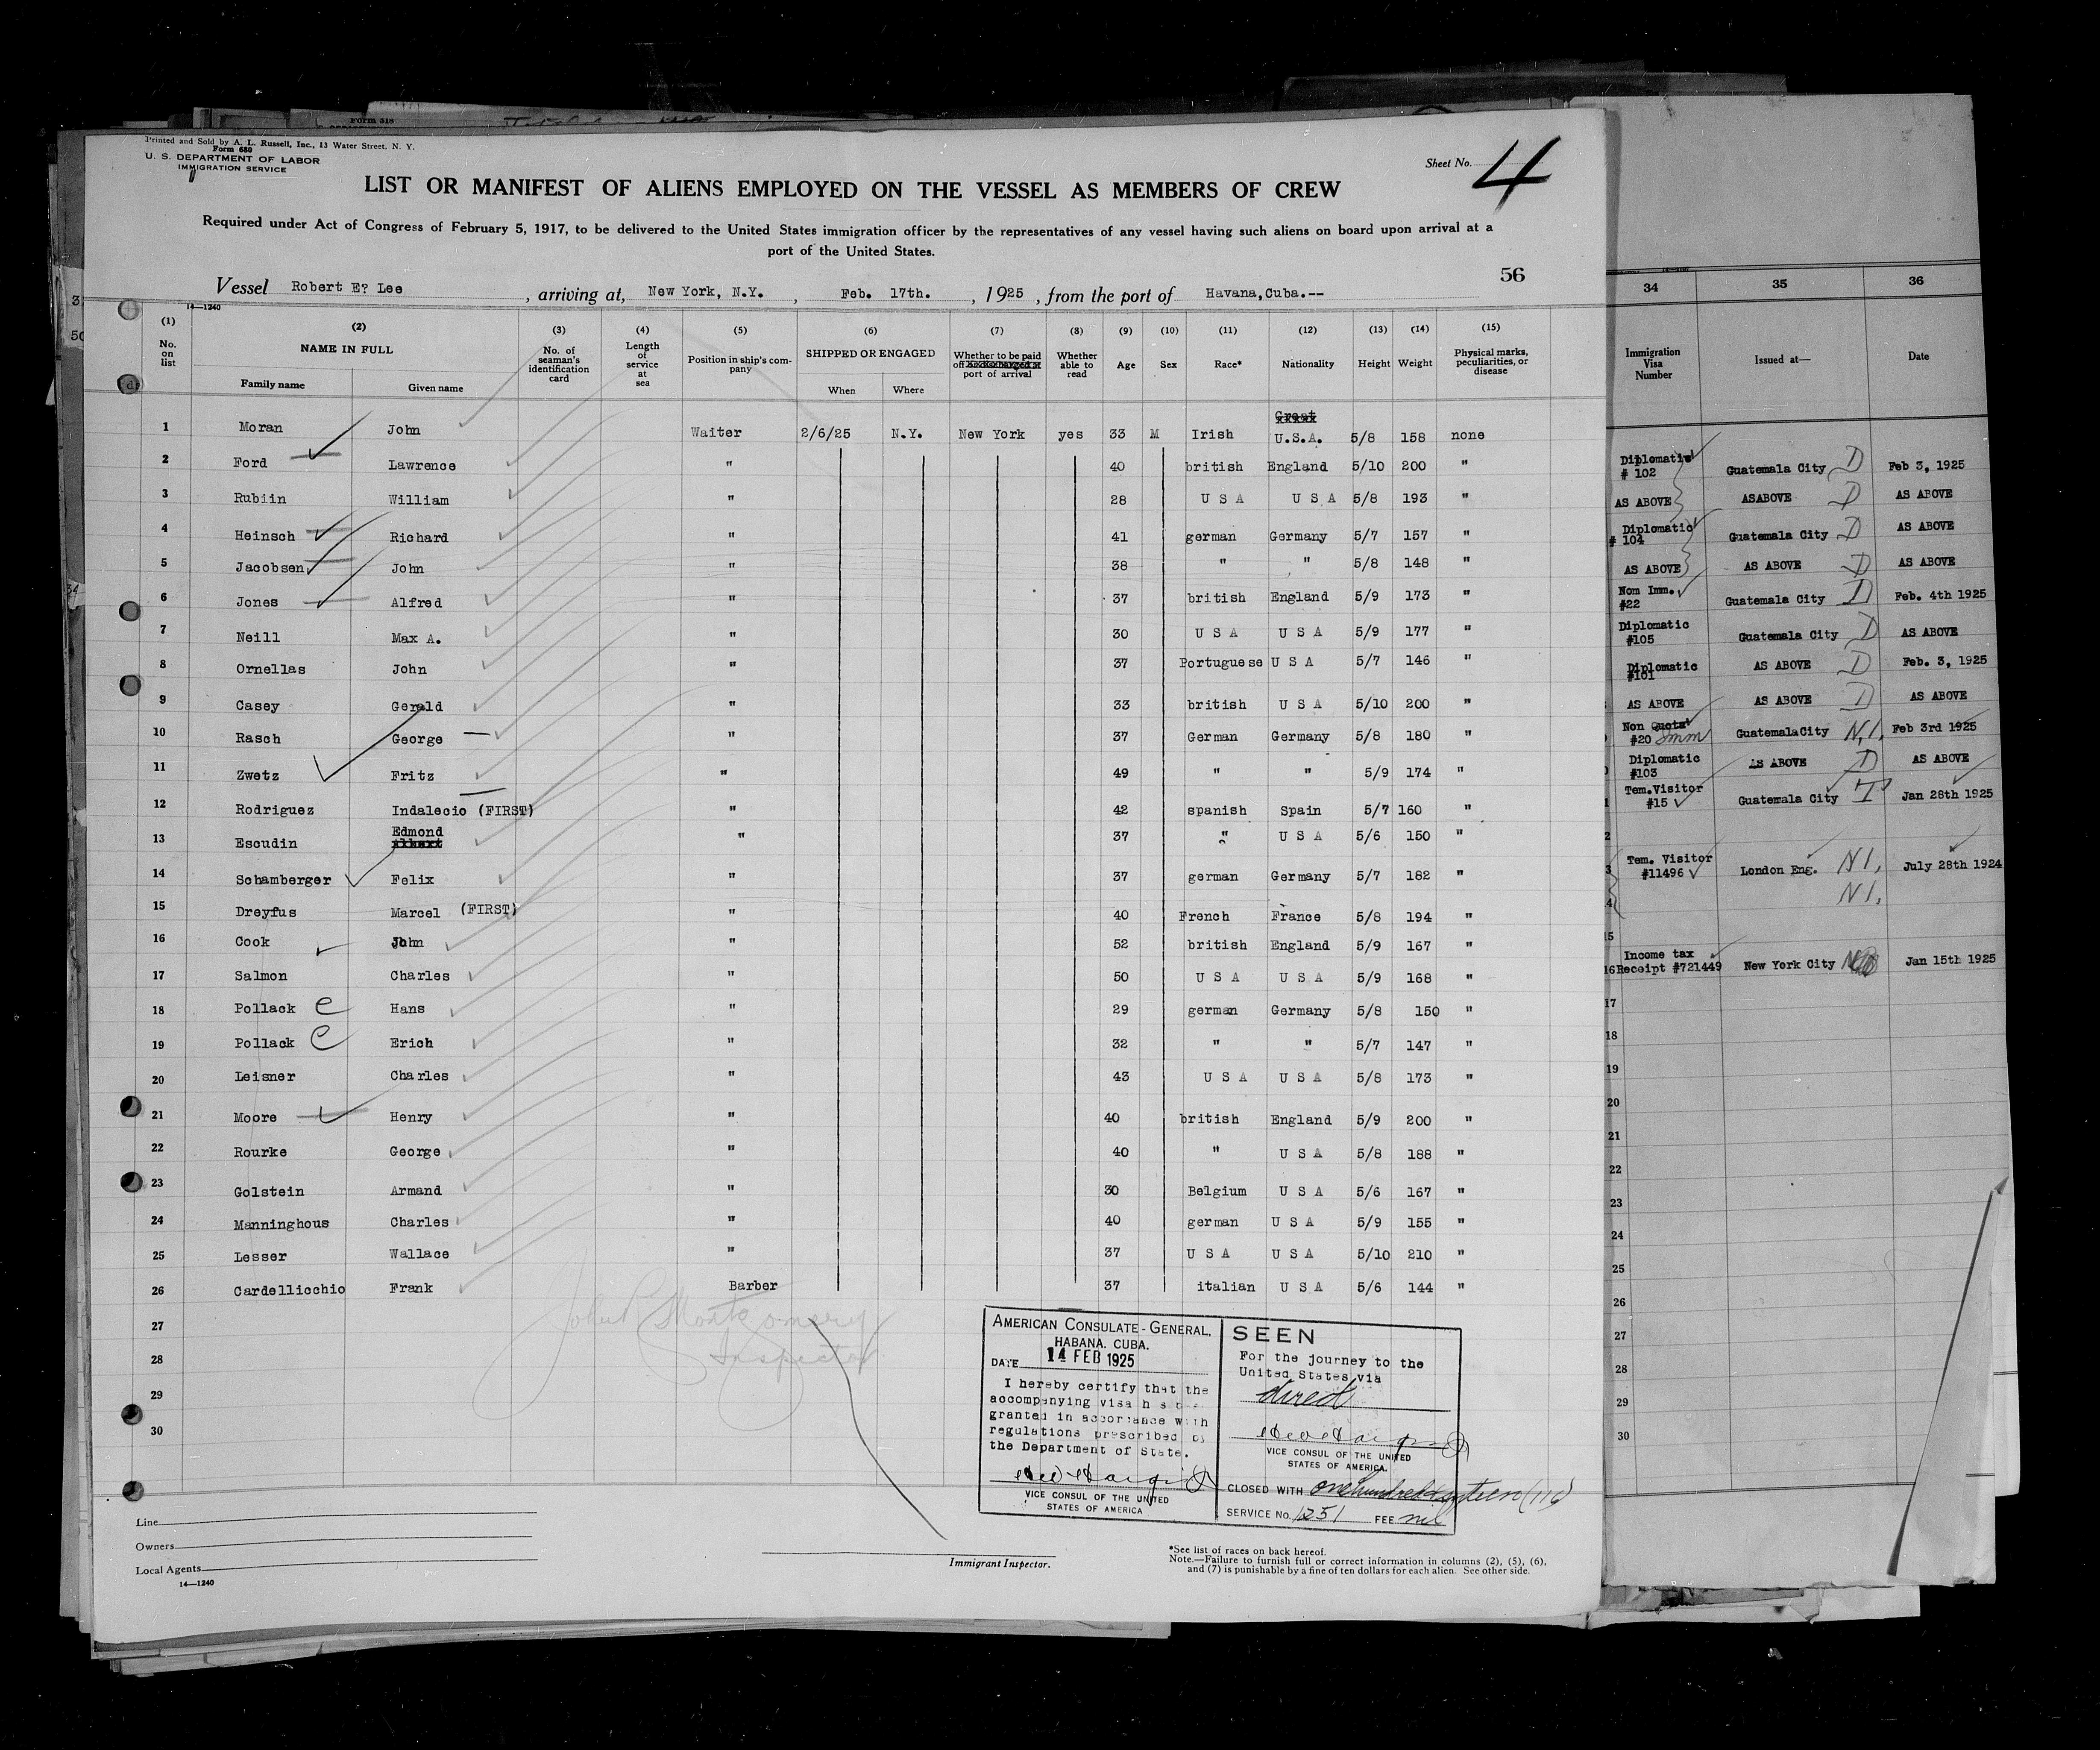 Form 518
Printed and Sold by A. L. Russell, Inc., 13 Water Street, N. Y.
Form 680
U. S. DEPARTMENT OF LABOR
IMMIGRATION SERVICE
Sheet No. 4
LIST OR MANIFEST OF ALIENS EMPLOYED ON THE VESSEL AS MEMBERS OF CREW
Required under Act of Congress of February 5, 1917, to be delivered to the United States immigration officer by the representatives of any vessel having such aliens on board upon arrival at a
port of the United States.
56
Vessel Robert E? Lee, arriving at, New York, N.Y., Feb. 17th., 1925, from the port of Havana,Cuba.--
14—1240
(1) (2) (3) (4) (5) (6) (7) (8) (9) (10) (11) (12) (13) (14) (15)
No. on list NAME IN FULL Family name Given name No. of seaman's identification card Length of service at sea Position in ship's company SHIPPED OR ENGAGED When Where Whether to be paid off port of arrival Whether able to read Age Sex Race* Nationality Height Weight Physical marks, peculiarities, or disease
Great
1 Moran John Waiter 2/6/25 N.Y. New York yes 33 M Irish U.S.A. 5/8 158 none
2 Ford Lawrence " 40 british England 5/10 200 "
3 Rubiin William " 28 U S A U S A 5/8 193 "
4 Heinsch Richard " 41 german Germany 5/7 157 "
5 Jacobsen John " 38 " " 5/8 148 "
6 Jones Alfred " 37 british England 5/9 173 "
7 Neill Max A. " 30 U S A U S A 5/9 177 "
8 Ornellas John " 37 Portuguese U S A 5/7 146 "
9 Casey Gerald " 33 british U S A 5/10 200 "
10 Rasch George " 37 German Germany 5/8 180 "
11 Zwetz Fritz " 49 " " 5/9 174 "
12 Rodriguez Indalecio (FIRST) " 42 spanish Spain 5/7 160 "
13 Escudin Edmond Albert " 37 " U S A 5/6 150 "
14 Schamberger Felix " 37 german Germany 5/7 182 "
15 Dreyfus Marcel (FIRST) " 40 French France 5/8 194 "
16 Cook John " 52 british England 5/9 167 "
17 Salmon Charles " 50 U S A U S A 5/9 168 "
18 Pollack e Hans " 29 german Germany 5/8 150 "
19 Pollack e Erich " 32 " " 5/7 147 "
20 Leisner Charles " 43 U S A U S A 5/8 173 "
21 Moore Henry " 40 british England 5/9 200 "
22 Rourke George " 40 " U S A 5/8 188 "
23 Golstein Armand " 30 Belgium U S A 5/6 167 "
24 Manninghous Charles " 40 german U S A 5/9 155 "
25 Lesser Wallace " 37 U S A U S A 5/10 210 "
26 Cardellicchio Frank Barber 37 italian U S A 5/6 144 "
27
28
29
30
John R Montgomery
Inspector
AMERICAN CONSULATE-GENERAL,
HABANA. CUBA.
DATE 14 FEB 1925
I hereby certify that the
accompanying visa has been
granted in accordance with
regulations prescribed by
the Department of State.
VICE CONSUL OF THE UNITED
STATES OF AMERICA
SEEN
For the journey to the
United States via
direct
VICE CONSUL OF THE UNITED
STATES OF AMERICA.
CLOSED WITH one hundred sixteen (116)
SERVICE No. 1251 FEE nil
Line
Owners
Local Agents
14—1240
Immigrant Inspector.
*See list of races on back hereof.
Note.—Failure to furnish full or correct information in columns (2), (5), (6),
and (7) is punishable by a fine of ten dollars for each alien. See other side.
34 35 36
Immigration Visa Number Issued at— Date
Diplomatic # 102 Guatemala City D Feb 3, 1925
AS ABOVE ASABOVE D AS ABOVE
Diplomatic # 104 Guatemala City D AS ABOVE
AS ABOVE AS ABOVE D AS ABOVE
Non Imm. #22 Guatemala City D Feb. 4th 1925
Diplomatic #105 Guatemala City D AS ABOVE
Diplomatic #101 AS ABOVE D Feb. 3, 1925
AS ABOVE AS ABOVE D AS ABOVE
Non Quota #20 Imm GuatemalaCity N.I. Feb 3rd 1925
Diplomatic #103 AS ABOVE D AS ABOVE
Tem.Visitor #15 Guatemala City T Jan 28th 1925
Tem. Visitor #11496 London Eng. N I. July 28th 1924
N I.
15
Income tax
16 Receipt #721449 New York City Jan 15th 1925
17
18
19
20
21
22
23
24
25
26
27
28
29
30